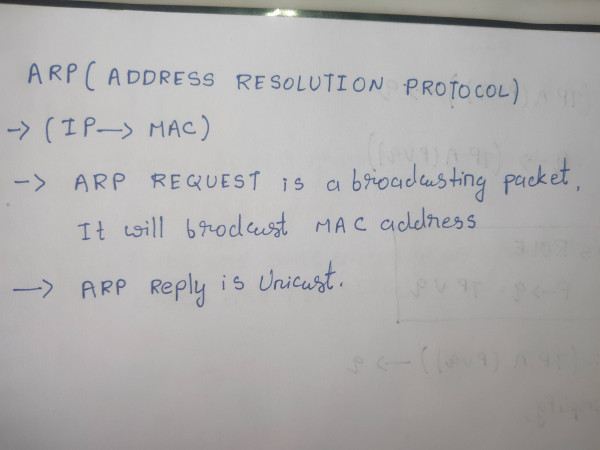 ARP( ADDRESS RESOLUTION PROTOCOL)
-> (IP—> MAC)
-> ARP REQUEST is a broadcasting packet,
It will brodcast MAC address
—> ARP Reply is Unicast.